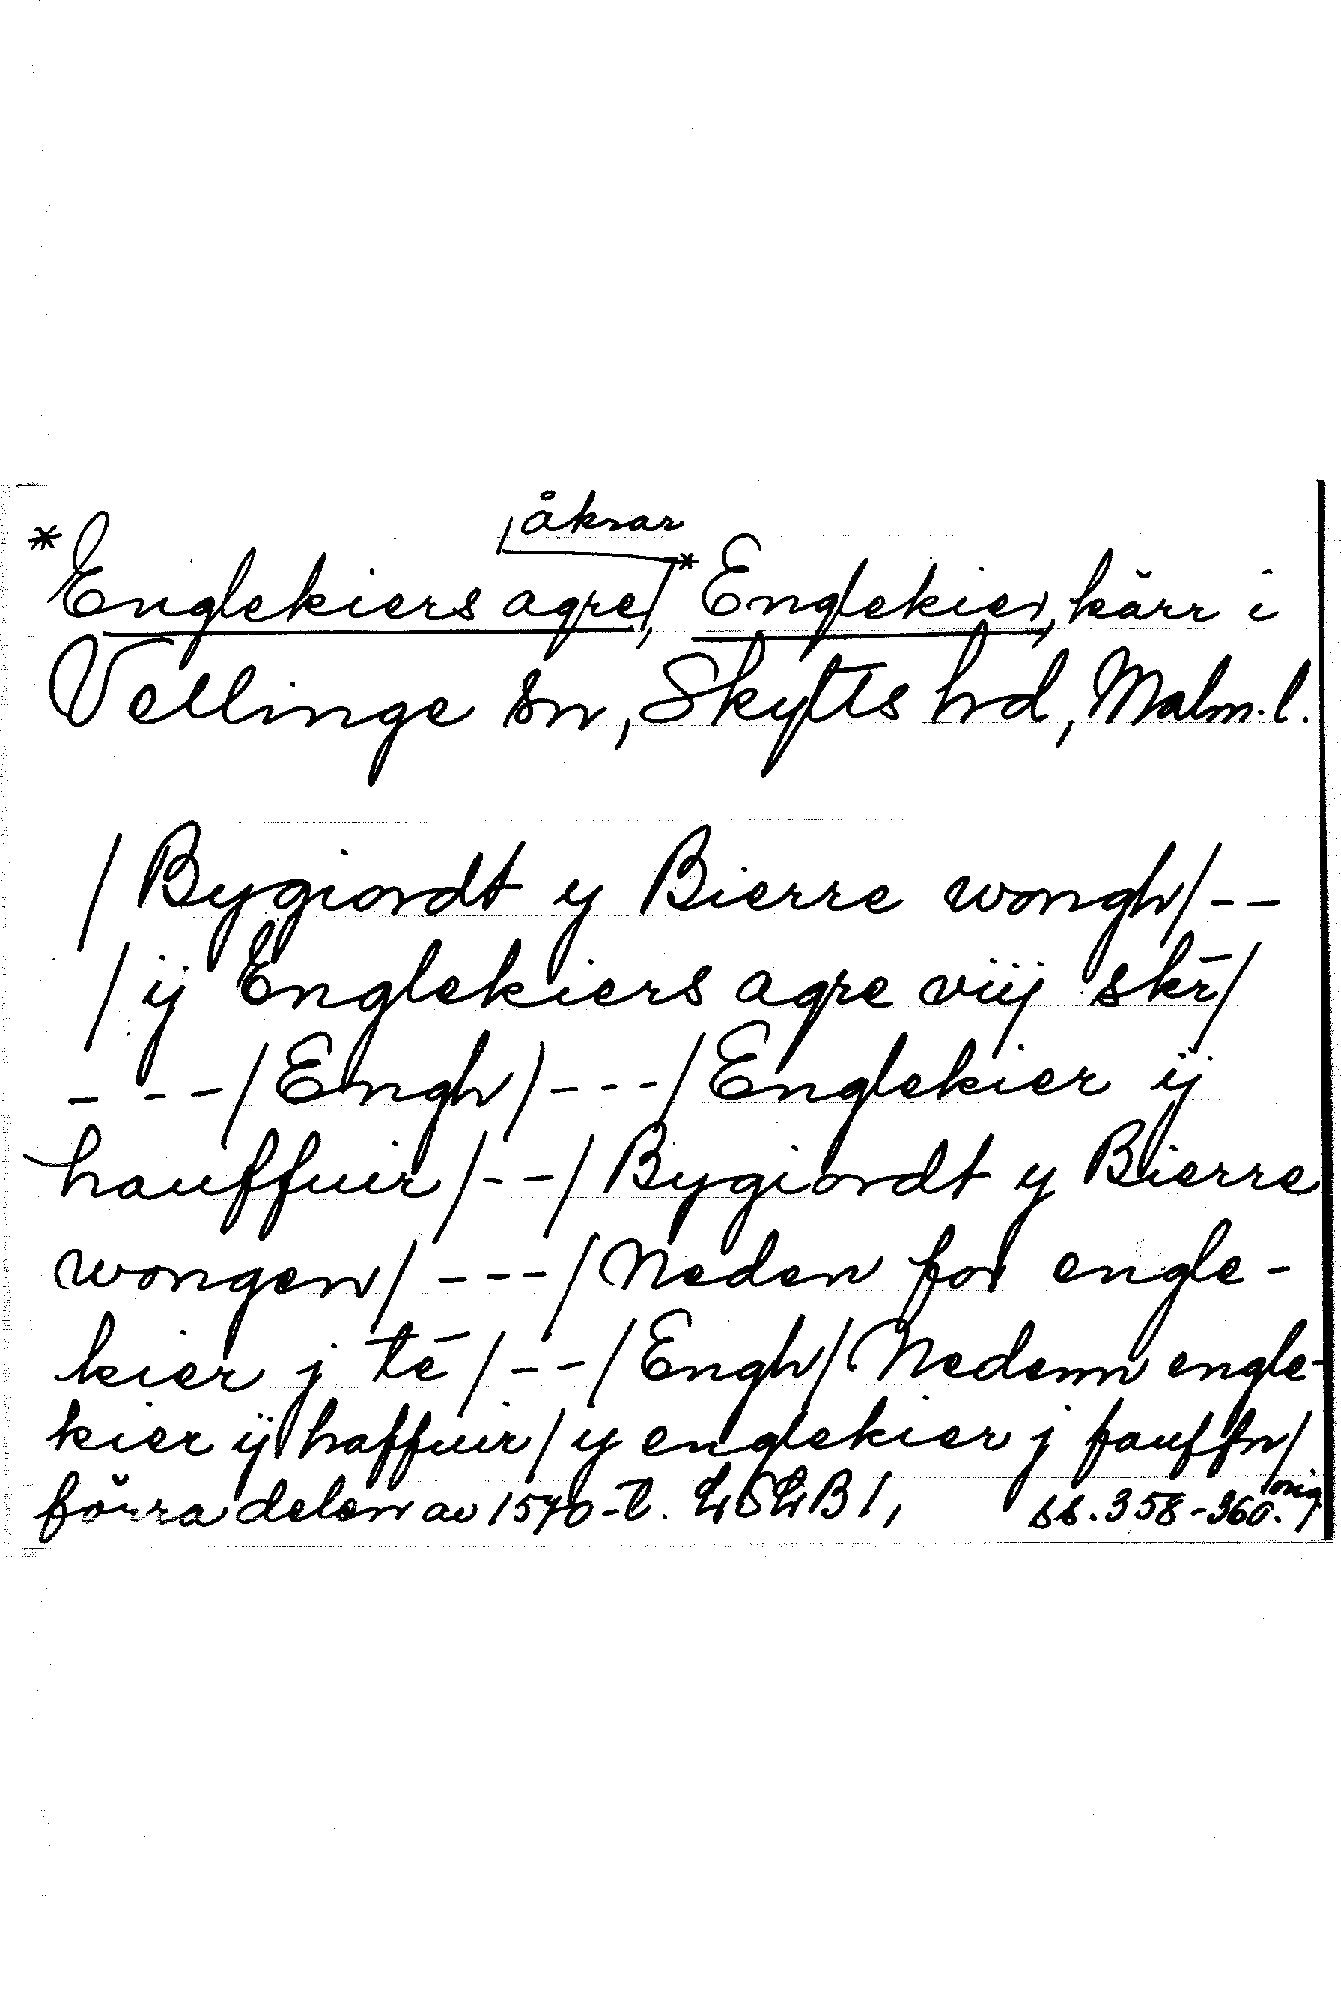 , åkrar
*Englekiers agre, *Englekier, kärr i
Vellinge sn, Skytts hd, Malm. l.
/ Bygiordt y Bierre wongh / - -
/ ij Englekiers agre viij skr̄ /
- - - / Engh / - - - / Englekier ij
hauffuir / - - / Bygiordt y Bierre
wongen / - - - / Neden for engle-
kier j tē / - - / Engh / Nedenn engle-
kier ij haffuir / y englekier j fauffn /
förra delen av 1570-t. LSLB 1, ss. 358-360. orig.